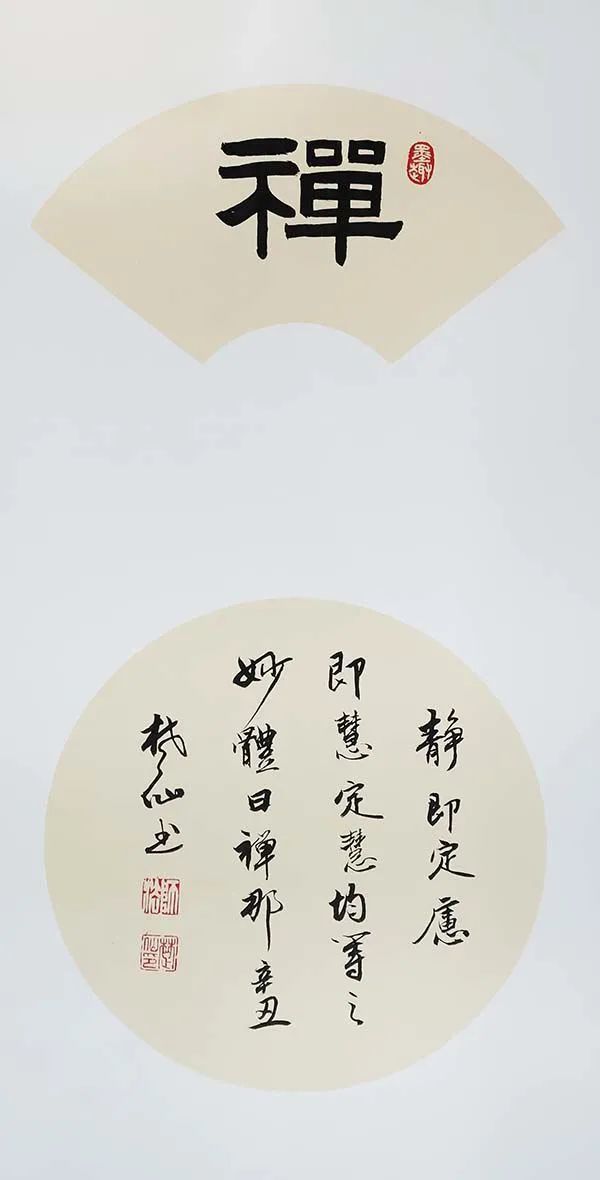 禪
墨趣
静即定慮
即慧定慧均等之
妙體曰禅那辛丑
仙书